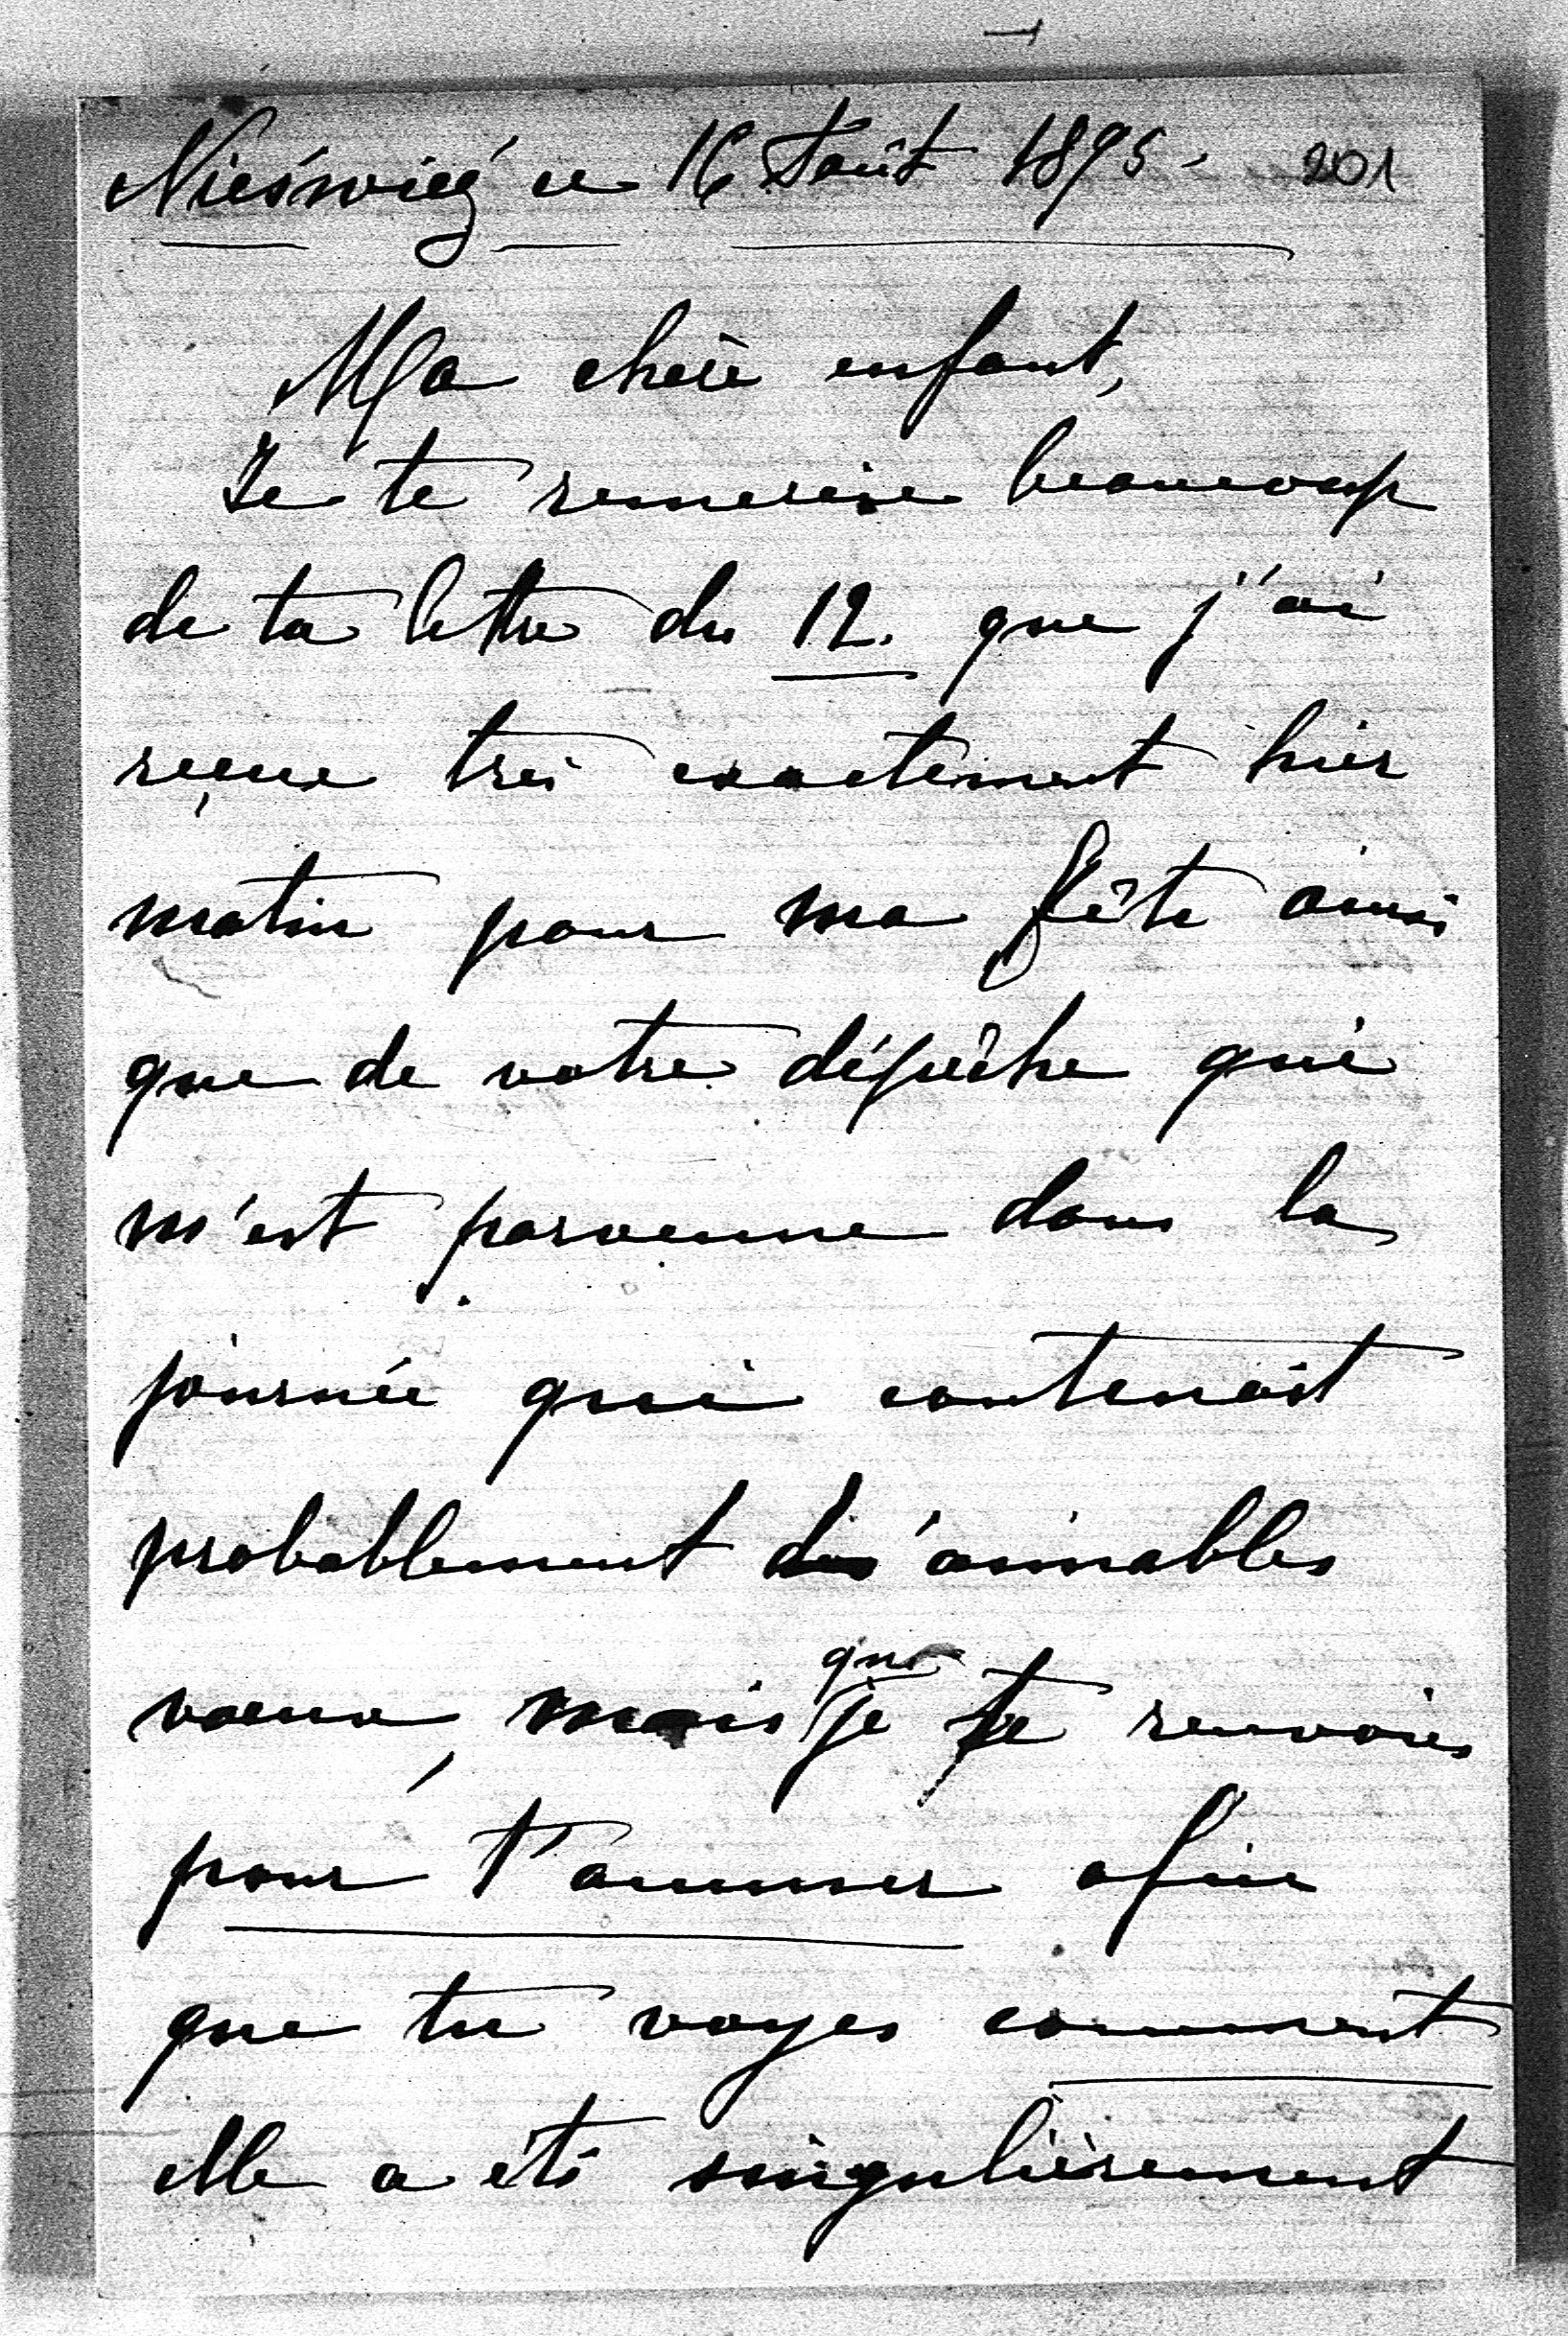 Nieśwież ce 16 Août 1895. 201
Ma chère enfant,
Je te remercie beaucoup
de ta lettre du 12. que j'ai
reçue très exactement hier
matin pour ma fête ainsi
que de votre dépêche qui
m'est parvenue dans la
journée qui contenait
probablement des aimables
voeux, mais que je te renvoies
pour t'amuser afin
que tu voyes comment
elle a été singulièrement